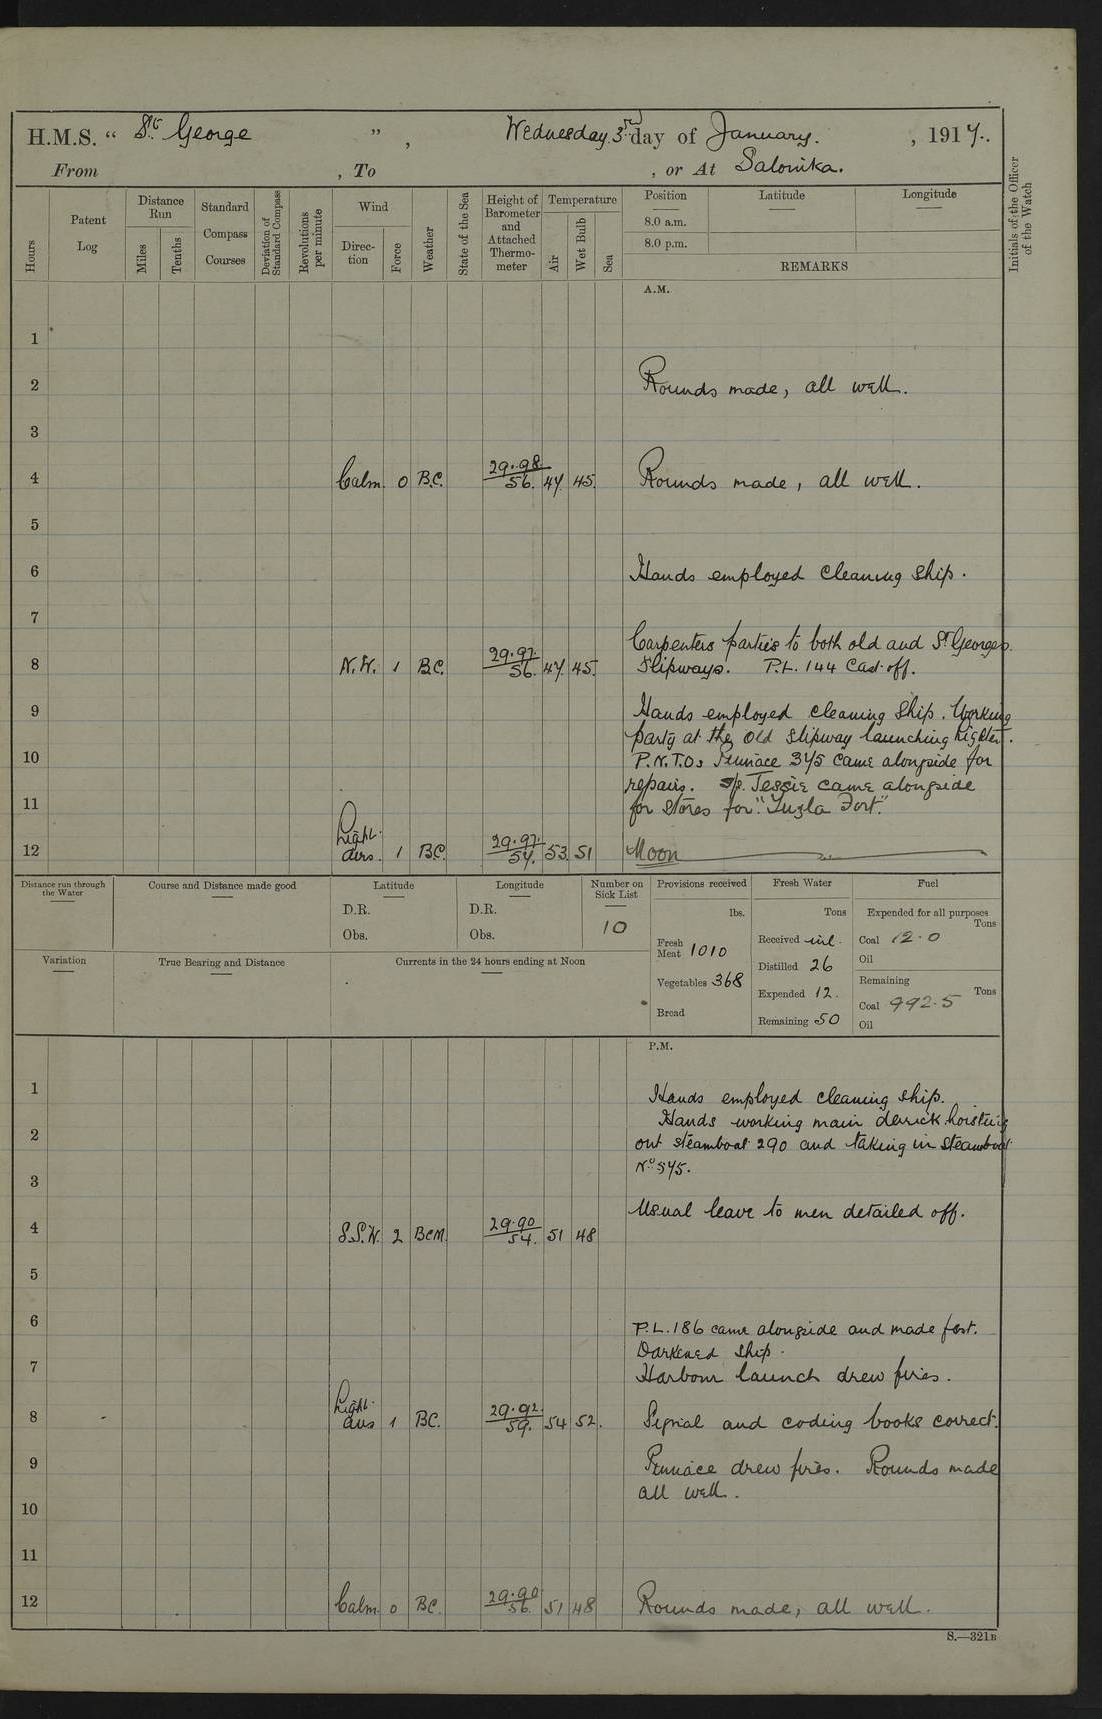 H.M.S. “ St. George ”, Wednesday 3rd day of January. , 1917.
From , To , or At Salonika.
Hours
Patent Log
Distance Run
Miles
Tenths
Standard Compass Courses
Deviation of Standard Compass
Revolutions per minute
Wind
Direction
Force
Weather
State of the Sea
Height of Barometer and Attached Thermometer
Temperature
Air
Wet Bulb
Sea
Position
Latitude
Longitude
8.0 a.m.
8.0 p.m.
REMARKS
Initials of the Officer of the Watch
A.M.
1
2 Rounds made, all well.
3
4 Calm. 0 B.C. 29.98 56. 47 45. Rounds made, all well.
5
6 Hands employed cleaning ship.
7
Carpenters parties to both old and St Georges
8 N.W. 1 B.C. 29.97 56. 47 45. Slipways. P.L. 144 Cast off.
9 Hands employed cleaning ship. Working
party at the old slipway launching lighter.
10 P.N.T.Os Pinnace 345 came alongside for
repairs. Tessie came alongside
11 for stores for "Tuzla Fort."
12 Light airs. 1 B.C. 29.97 57. 53 51 Noon
Distance run through the Water
Course and Distance made good
Latitude
D.R.
Obs.
Longitude
D.R.
Obs.
Number on Sick List
10
Provisions received
lbs.
Fresh Meat 1010
Vegetables 368
Bread
Fresh Water
Tons
Received nil.
Distilled 26
Expended 12.
Remaining 50
Fuel
Expended for all purposes
Tons
Coal 12.0
Oil
Remaining
Tons
Coal 992.5
Oil
Variation
True Bearing and Distance
Currents in the 24 hours ending at Noon
P.M.
1 Hands employed cleaning ship.
Hands working main derrick hoisting
2 out steamboat 290 and taking in steamboat
3 No 545.
Usual leave to men detailed off.
4 S.S.W. 2 BCM. 29.90 54. 51 48
5
6 P.L. 186 came alongside and made fast.
Darkened ship.
7 Harbour launch drew fires.
8 Light airs 1 BC. 29.92. 59. 54 52. Signal and coding books correct.
9 Pinnace drew fires. Rounds made
all well.
10
11
12 Calm. 0 BC. 29.90 56. 51 48 Rounds made, all well.
S.—321B